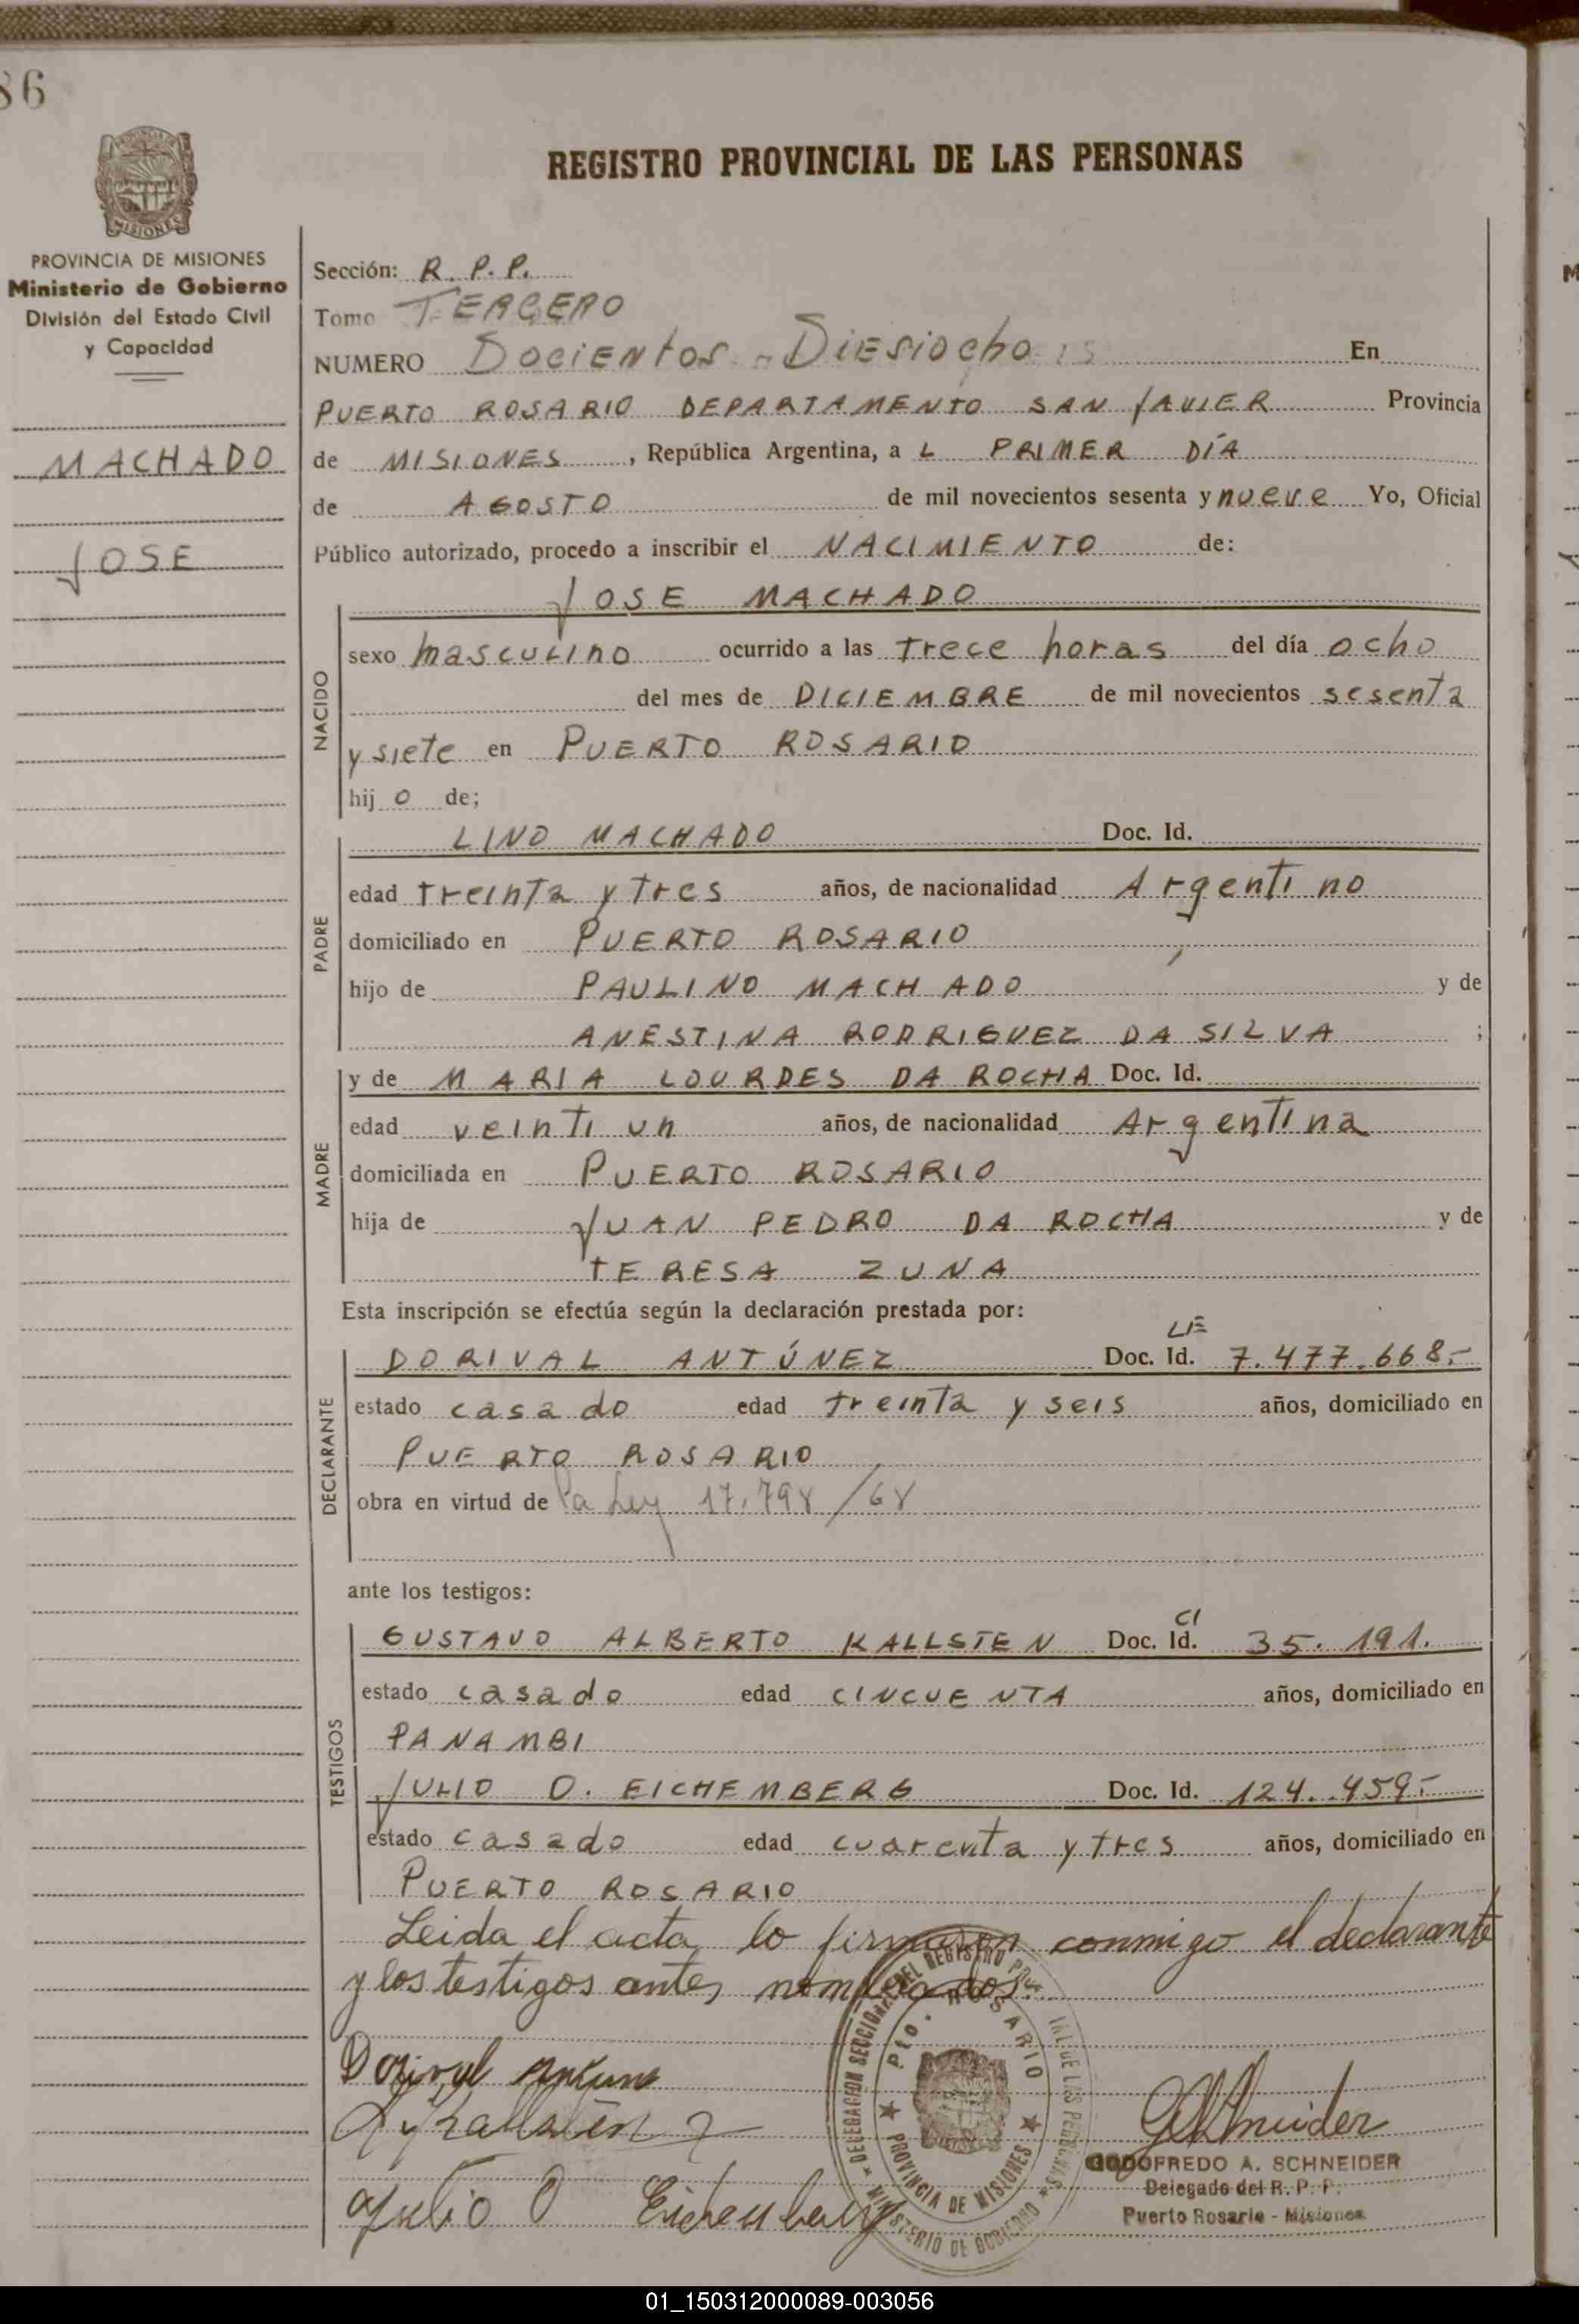 86
MISIONES
PROVINCIA DE MISIONES
Ministerio de Gobierno
División del Estado Civil
y Capacidad
MACHADO
JOSE
REGISTRO PROVINCIAL DE LAS PERSONAS
Sección: R. P. P.
Tomo TERCERO
NUMERO Docientos - Diesiocho En
PUERTO ROSARIO DEPARTAMENTO SAN JAVIER Provincia
de MISIONES , República Argentina, a L PRIMER DÍA
de AGOSTO de mil novecientos sesenta y nueve Yo, Oficial
Público autorizado, procedo a inscribir el NACIMIENTO de:
JOSE MACHADO
NACIDO
sexo masculino ocurrido a las trece horas del día ocho
del mes de DICIEMBRE de mil novecientos sesenta
y siete en PUERTO ROSARIO
hij o de;
PADRE
LINO MACHADO Doc. Id.
edad treinta y tres años, de nacionalidad Argentino
domiciliado en PUERTO ROSARIO
hijo de PAULINO MACHADO y de
ANESTINA RODRIGUEZ DA SILVA ;
MADRE
y de MARIA LOURDES DA ROCHA Doc. Id.
edad veinti un años, de nacionalidad Argentina
domiciliada en PUERTO ROSARIO
hija de JUAN PEDRO DA ROCHA y de
TERESA ZUNA
Esta inscripción se efectúa según la declaración prestada por:
DECLARANTE
LE
DORIVAL ANTÚNEZ Doc. Id. 7.477.668.-
estado casado edad treinta y seis años, domiciliado en
PUERTO ROSARIO
obra en virtud de la Ley 17.798/68
ante los testigos:
TESTIGOS
CI
GUSTAVO ALBERTO KALLSTEN Doc. Id. 35.191.
estado casado edad CINCUENTA años, domiciliado en
PANAMBI
JULIO O. EICHEMBERG Doc. Id. 124.459.-
estado casado edad cuarenta y tres años, domiciliado en
PUERTO ROSARIO
Leida el acta, lo firmaron conmigo el declarante
y los testigos antes nombrados.
DELEGACIÓN SECCIONAL DEL REGISTRO PROVINCIAL DE LAS PERSONAS
Pto. ROSARIO
PROVINCIA DE MISIONES
MINISTERIO DE GOBIERNO
Dorival
Kallsten
Julio O Eichemberg
GSchneider
GODOFREDO A. SCHNEIDER
Delegado del R. P. P.
Puerto Rosario - Misiones
01_150312000089-003056